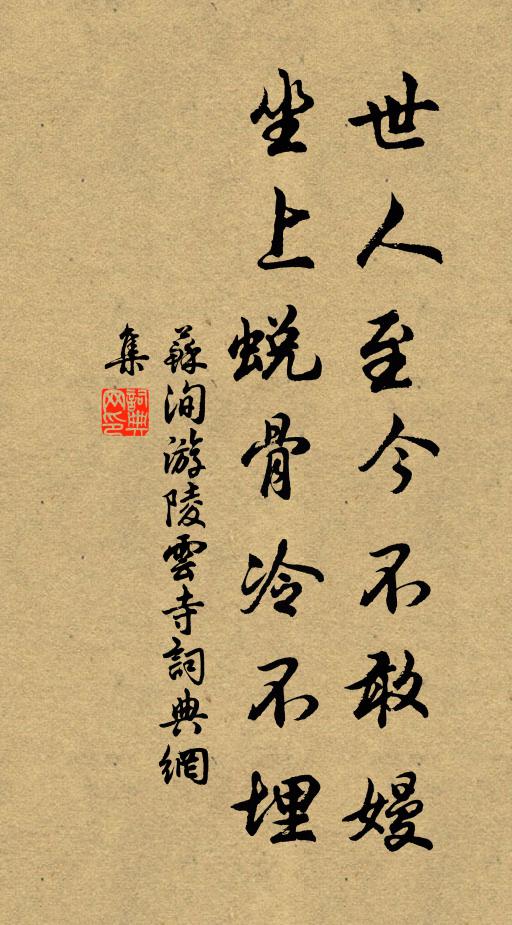 世人至今不敢嫚
坐上蜕骨冷不埋
蘇洵游陵雲寺詞典網
集
詞典網印